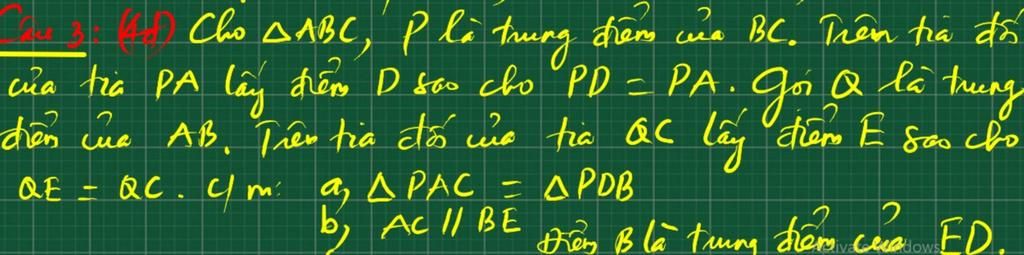 Câu 3: (4đ) Cho △ABC, P là trung điểm của BC. Trên tia đối
của tia PA lấy điểm D sao cho PD = PA. Gọi Q là trung
điểm của AB. Trên tia đối của tia QC lấy điểm E sao cho
QE = QC. C/m: a, △PAC = △PDB
b, AC // BE
điểm B là trung điểm của ED.